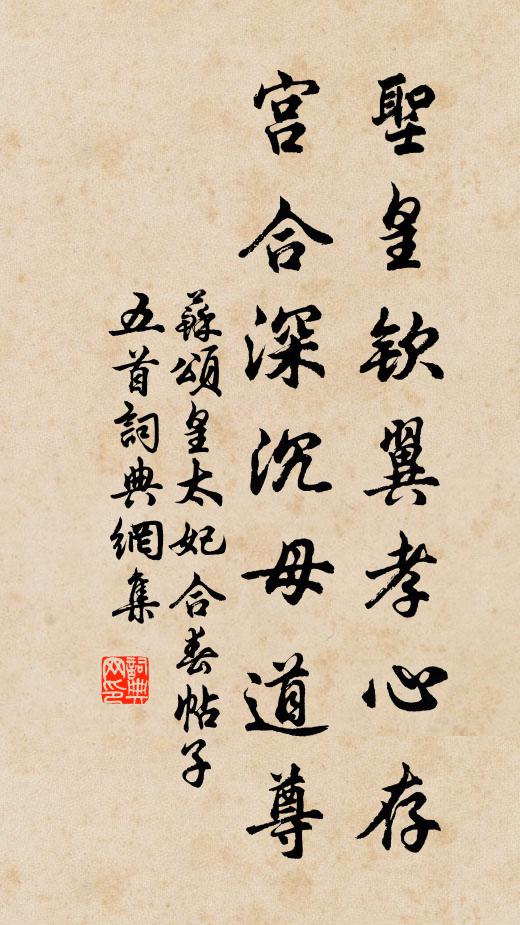 聖皇欽翼孝心存
宫合深沉母道尊
蘇頌皇太妃合春帖子
五首詞典網集
詞典网印